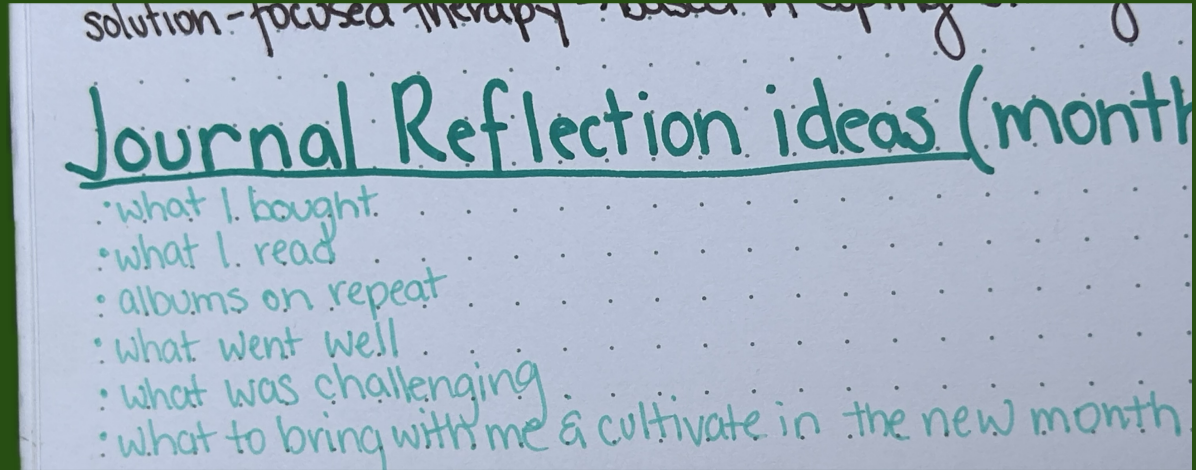 solution-focused therapy based in coping
Journal Reflection ideas (month
• what I bought
• what I read
• albums on repeat
• what went well
• what was challenging
• what to bring with me & cultivate in the new month